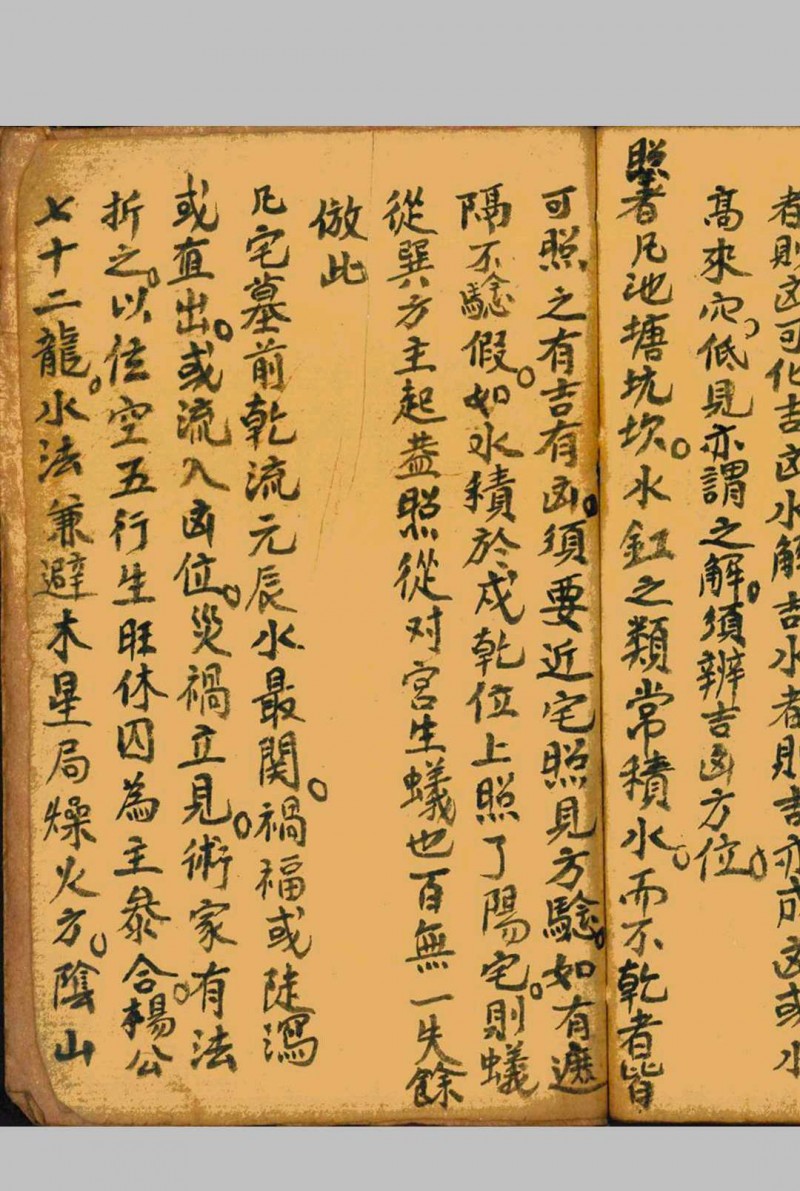 者則凶可化吉凶水解吉水者則吉亦成凶或水
高來穴。低見亦謂之解。須辨吉凶方位。
照者凡池塘坑坎。水缸之類常積水。而不乾者皆
可照之有吉有凶。須要近宅照見方騐。如有遮
隔不騐。假如水積於戍乾位上照了陽宅。則蟻
從巽方主起葢照從对宮生蟻也百無一失餘
倣此
凡宅墓前乾流元辰水最関。禍福或陡瀉
或直出。或流入凶位。災禍立見。術家有法
折之。以位空五行生旺休囚為主叅合。楊公
七十二龍。水法兼避木星局燥火方。陰山